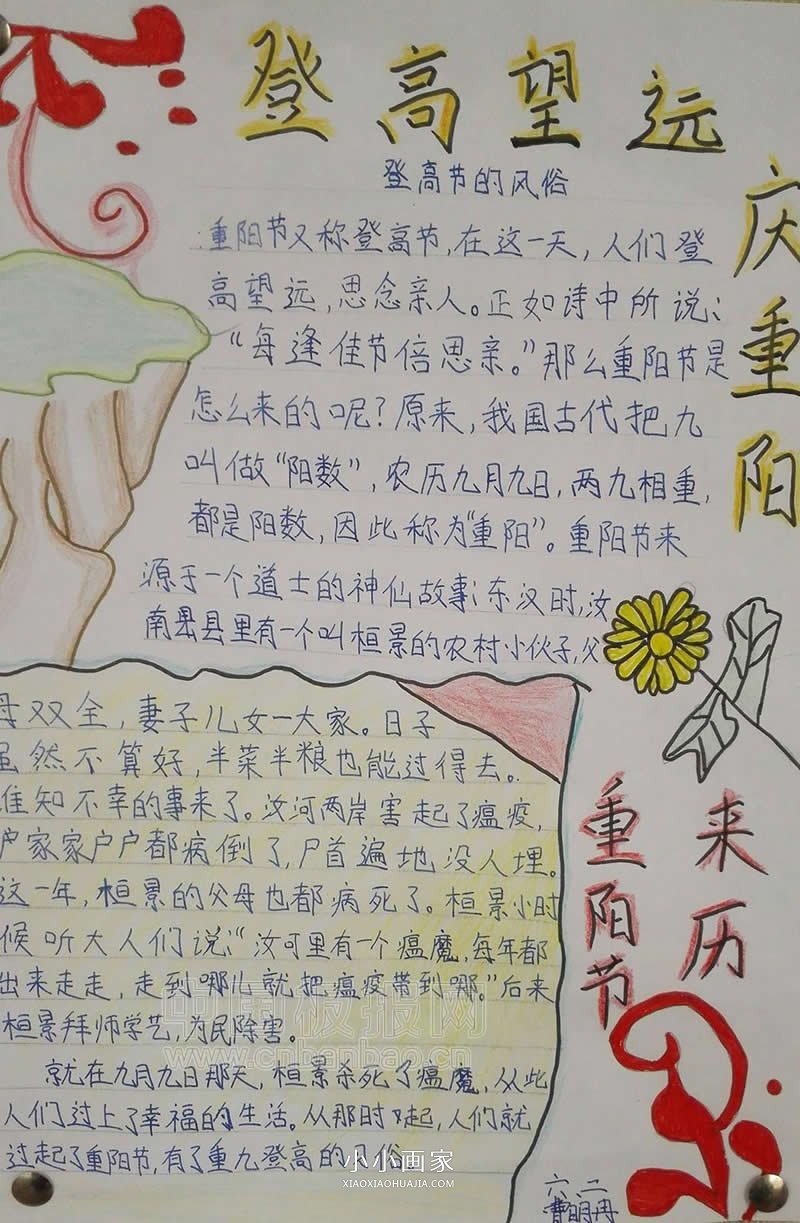 登高望远
庆重阳
登高节的风俗
重阳节又称登高节,在这一天,人们登
高望远,思念亲人。正如诗中所说:
“每逢佳节倍思亲。”那么重阳节是
怎么来的呢?原来,我国古代把九
叫做“阳数”,农历九月九日,两九相重,
都是阳数,因此称为“重阳”。重阳节来
源于一个道士的神仙故事:东汉时,汝
南县里有一个叫桓景的农村小伙子,父
母双全,妻子儿女一大家。日子
虽然不算好,半菜半粮也能过得去。
谁知不幸的事来了。汝河两岸害起了瘟疫,
户家家户户都病倒了,尸首遍地没人埋。
这一年,桓景的父母也都病死了。桓景小时
候听大人们说:“汝可里有一个瘟魔,每年都
出来走走,走到哪儿就把瘟疫带到哪。”后来
桓景拜师学艺,为民除害。
就在九月九日那天,桓景杀死了瘟魔,从此
人们过上了幸福的生活。从那时起,人们就
过起了重阳节,有了重九登高的风俗
重阳节
来历
六.二
中国板报网
www.cnbanbao.cn
小小画家
XIAOXIAOHUAJIA.COM